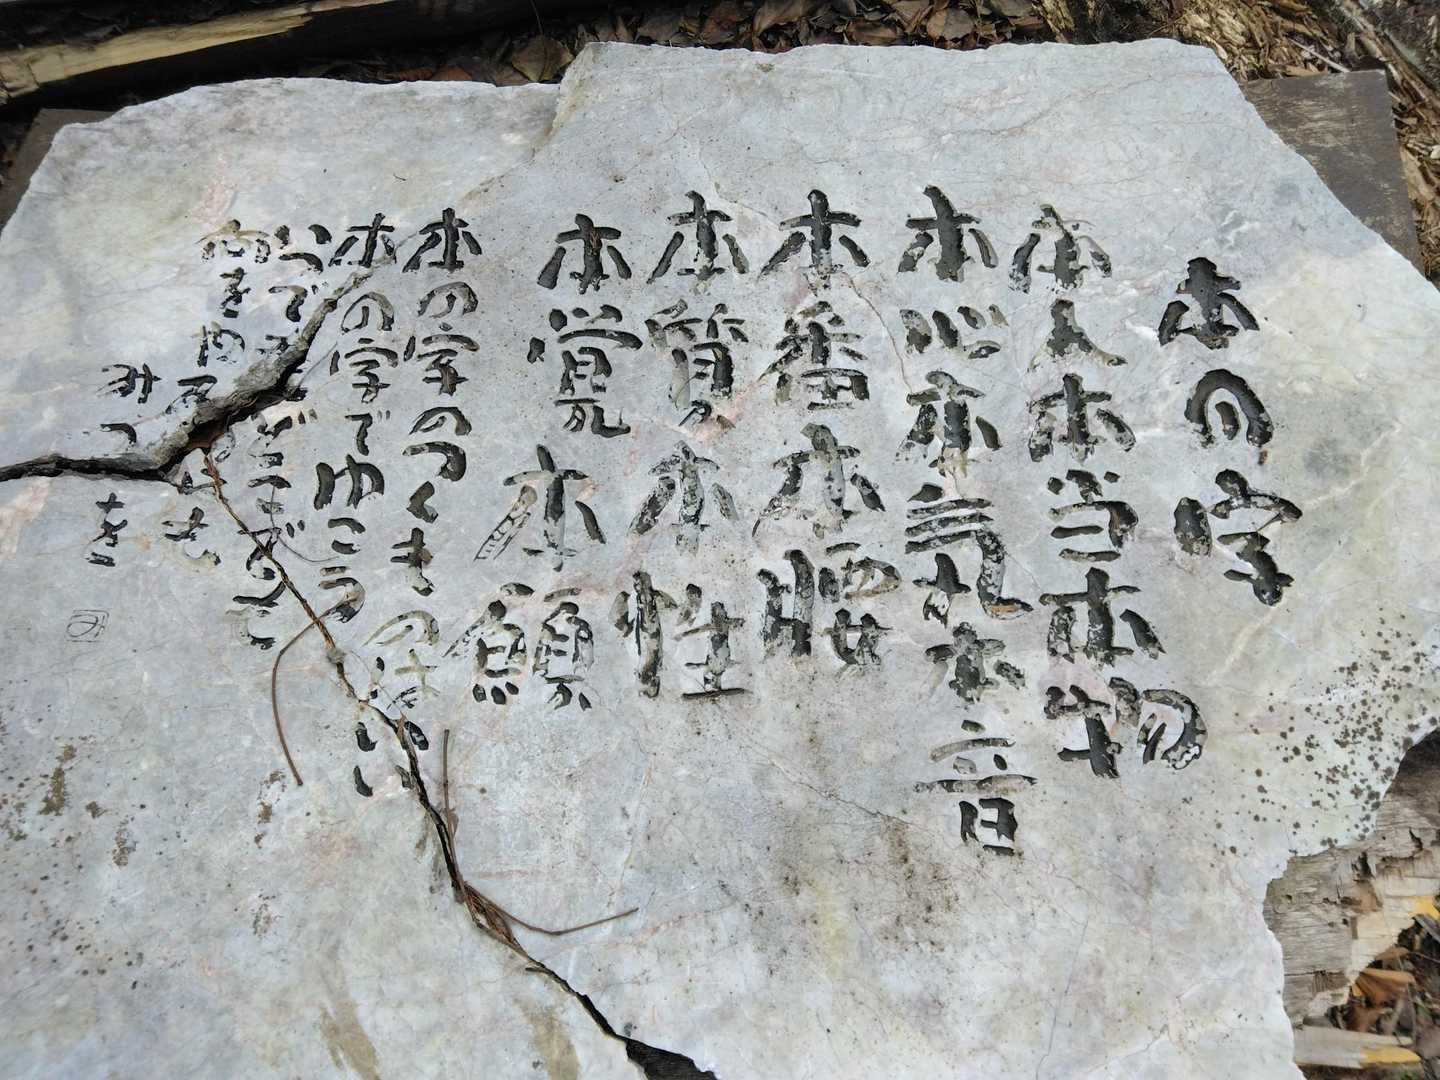 本の字
本人本当本物
本心本気本音
本番本腰
本質本性
本覚本願
本の字のつくものはいい
本の字でゆこう
いつで
何を
みつを